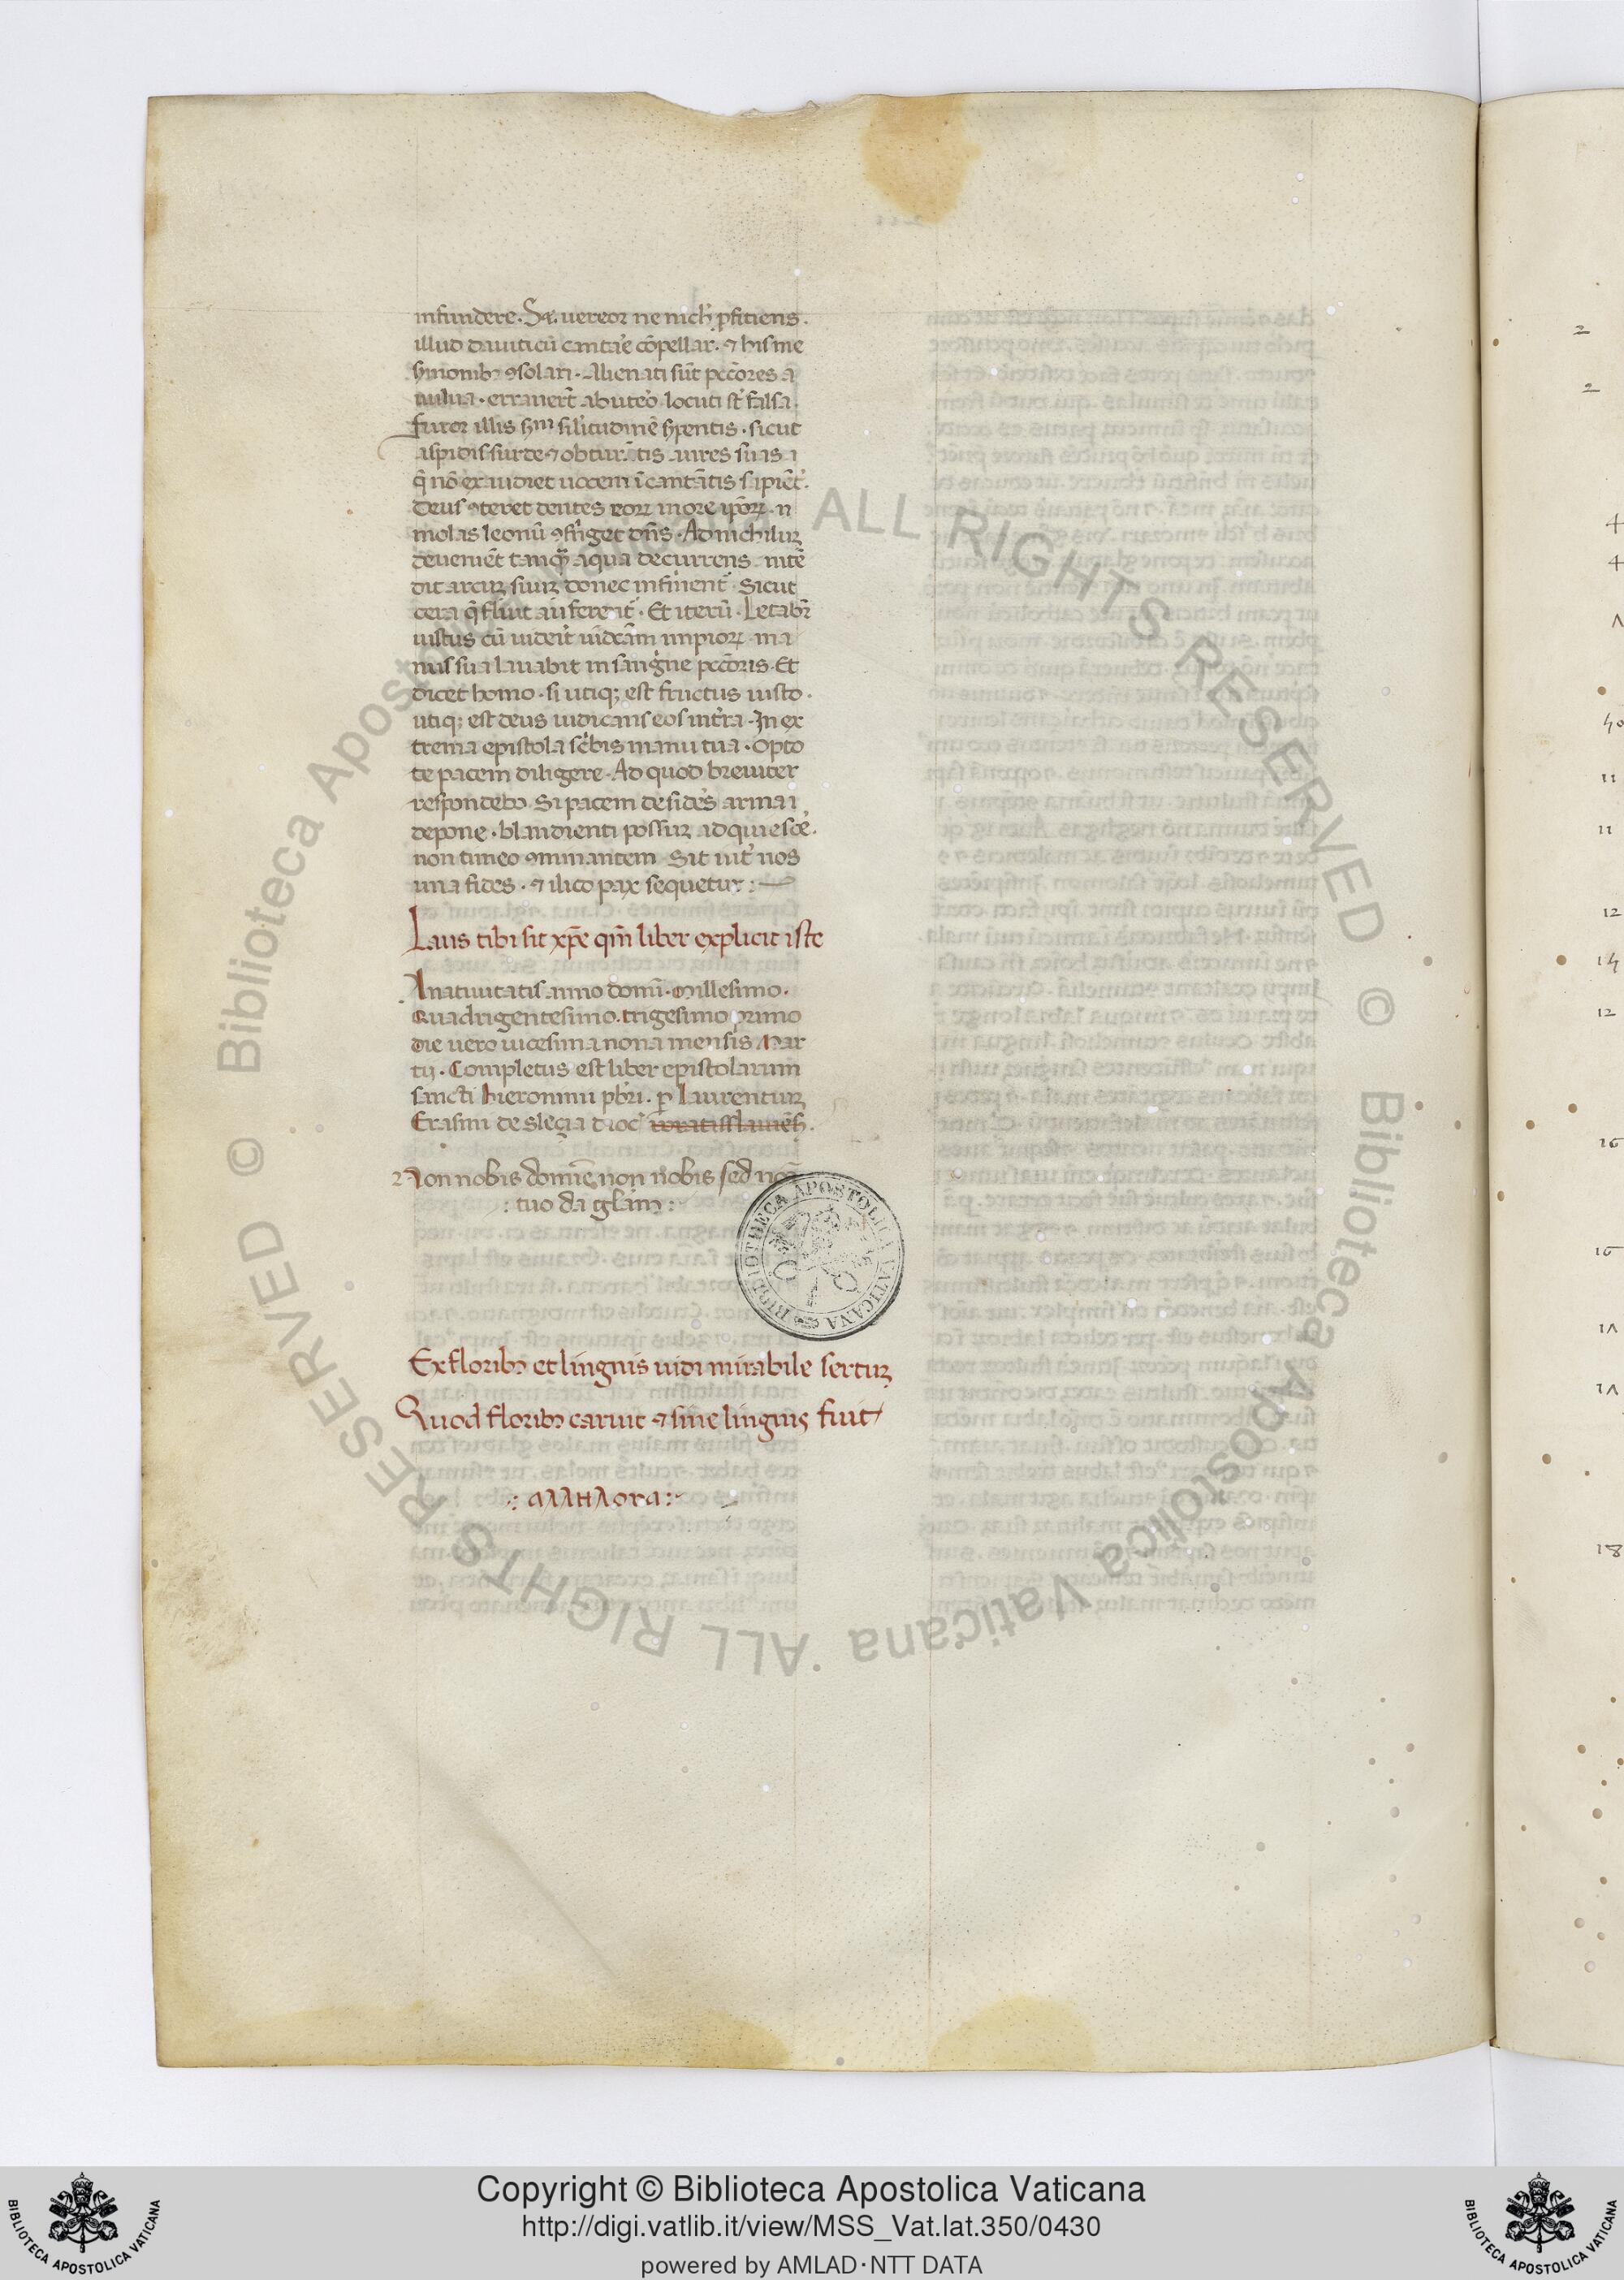 infundere. Sꝫ. uereor ne nich' ꝓfitiens.
illud dauiticū cantare cōpellar. ⁊ his me
ẜmonibꝫ ꝯsolari. Alienati sūt pccōres a
uulua. errauerūt ab utero. locuti sūt falsa.
furor illis ẜm silitudinē ẜpentis. sicut
aspidis surde ⁊ obturātis aures suas
q̄ nō exaudiet uocem īcantātis sapiēt'.
Deus ꝯteret dentes eoꝝ in ore ipōꝝ.
molas leonū ꝯfriget dn̄s. Ad nichilum
deueniēt tamq̄ aqua decurrens. intē
dit arcum suum donec infirmentur. Sicut
cera q̄ fluit auferent'. Et iterū. Letabr̄
iustus cū uiderit uīdcām impioꝝ. ma
nus sua lauabit in sangne pccōris. Et
dicet homo. si utiqꝫ est fructus iusto.
utiqꝫ est deus iudicans eos in t'ra. In ex
trema epistola sc'bis manu tua. Opto
te pacem diligere. Ad quod breuiter
respondebo. Si pacem desid'as arma
depone. blandienti possum adquiesce'.
non timeo ꝯminantem. Sit int' nos
una fides. ⁊ ilico pax sequetur:—
Laus tibi sit xp̄e qm̄ liber explicit iste
A natiuitatis anno domī. Millesimo.
Quadrigentesimo. trigesimo primo
die uero uicesima nona mensis Mar
tij. Completus est liber epistolarum
sancti hieronimi pb̄ri. ꝑ Laurentium
Erasmi de slezia dioc' woratisslauiēs.
Non nobis domīe non nobis sed noī
: tuo da glām :
Ex floribꝫ et linguis uidi mirabile sertum
Quod floribꝫ caruit ⁊ sine linguis fuit
: αλληλογα :
BIBLIOTHECA APOSTOLICA VATICANA
2
2
4
4
11
11
12
14
12
16
16
18
© Biblioteca Apostolica Vaticana ALL RIGHTS RESERVED © Biblioteca Apostolica Vaticana ALL RIGHTS RESERVED
BIBLIOTECA APOSTOLICA VATICANA
Copyright © Biblioteca Apostolica Vaticana
http://digi.vatlib.it/view/MSS_Vat.lat.350/0430
powered by AMLAD·NTT DATA
BIBLIOTECA APOSTOLICA VATICANA